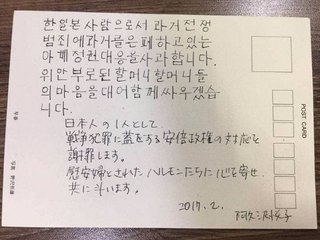 한일본사람으로서 과거전쟁
범죄에과거를은폐하고있는
아베정권대응을사과합니다.
위안부로된할머니할머니들
의마음을대어함께싸우겠습
니다.
日本人の1人として
戦争犯罪に蓋をする安倍政権の対応を
謝罪します。
慰安婦とされたハルモニたちに心を寄せ
共に斗います。
2017.2.
POST CARD